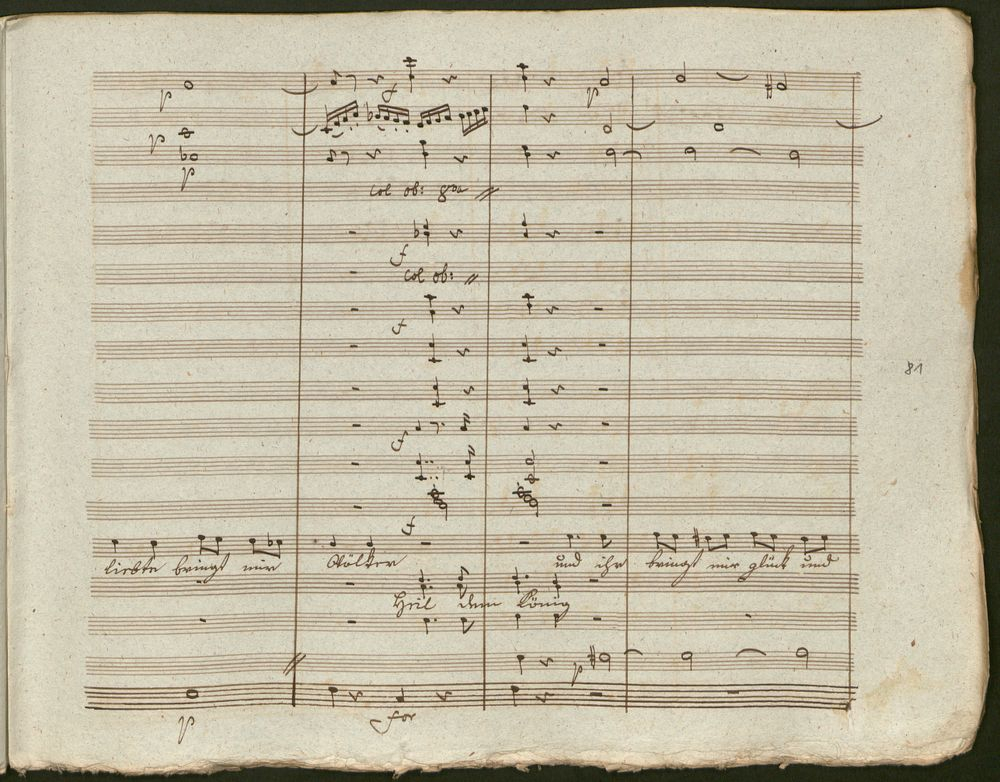 p
f
p
p
p
col ob: 8va
f
col ob:
f
81
f
f
liebte bringt mir Völker und ihr bringt mir glück und
Heil dem König
p
p
for